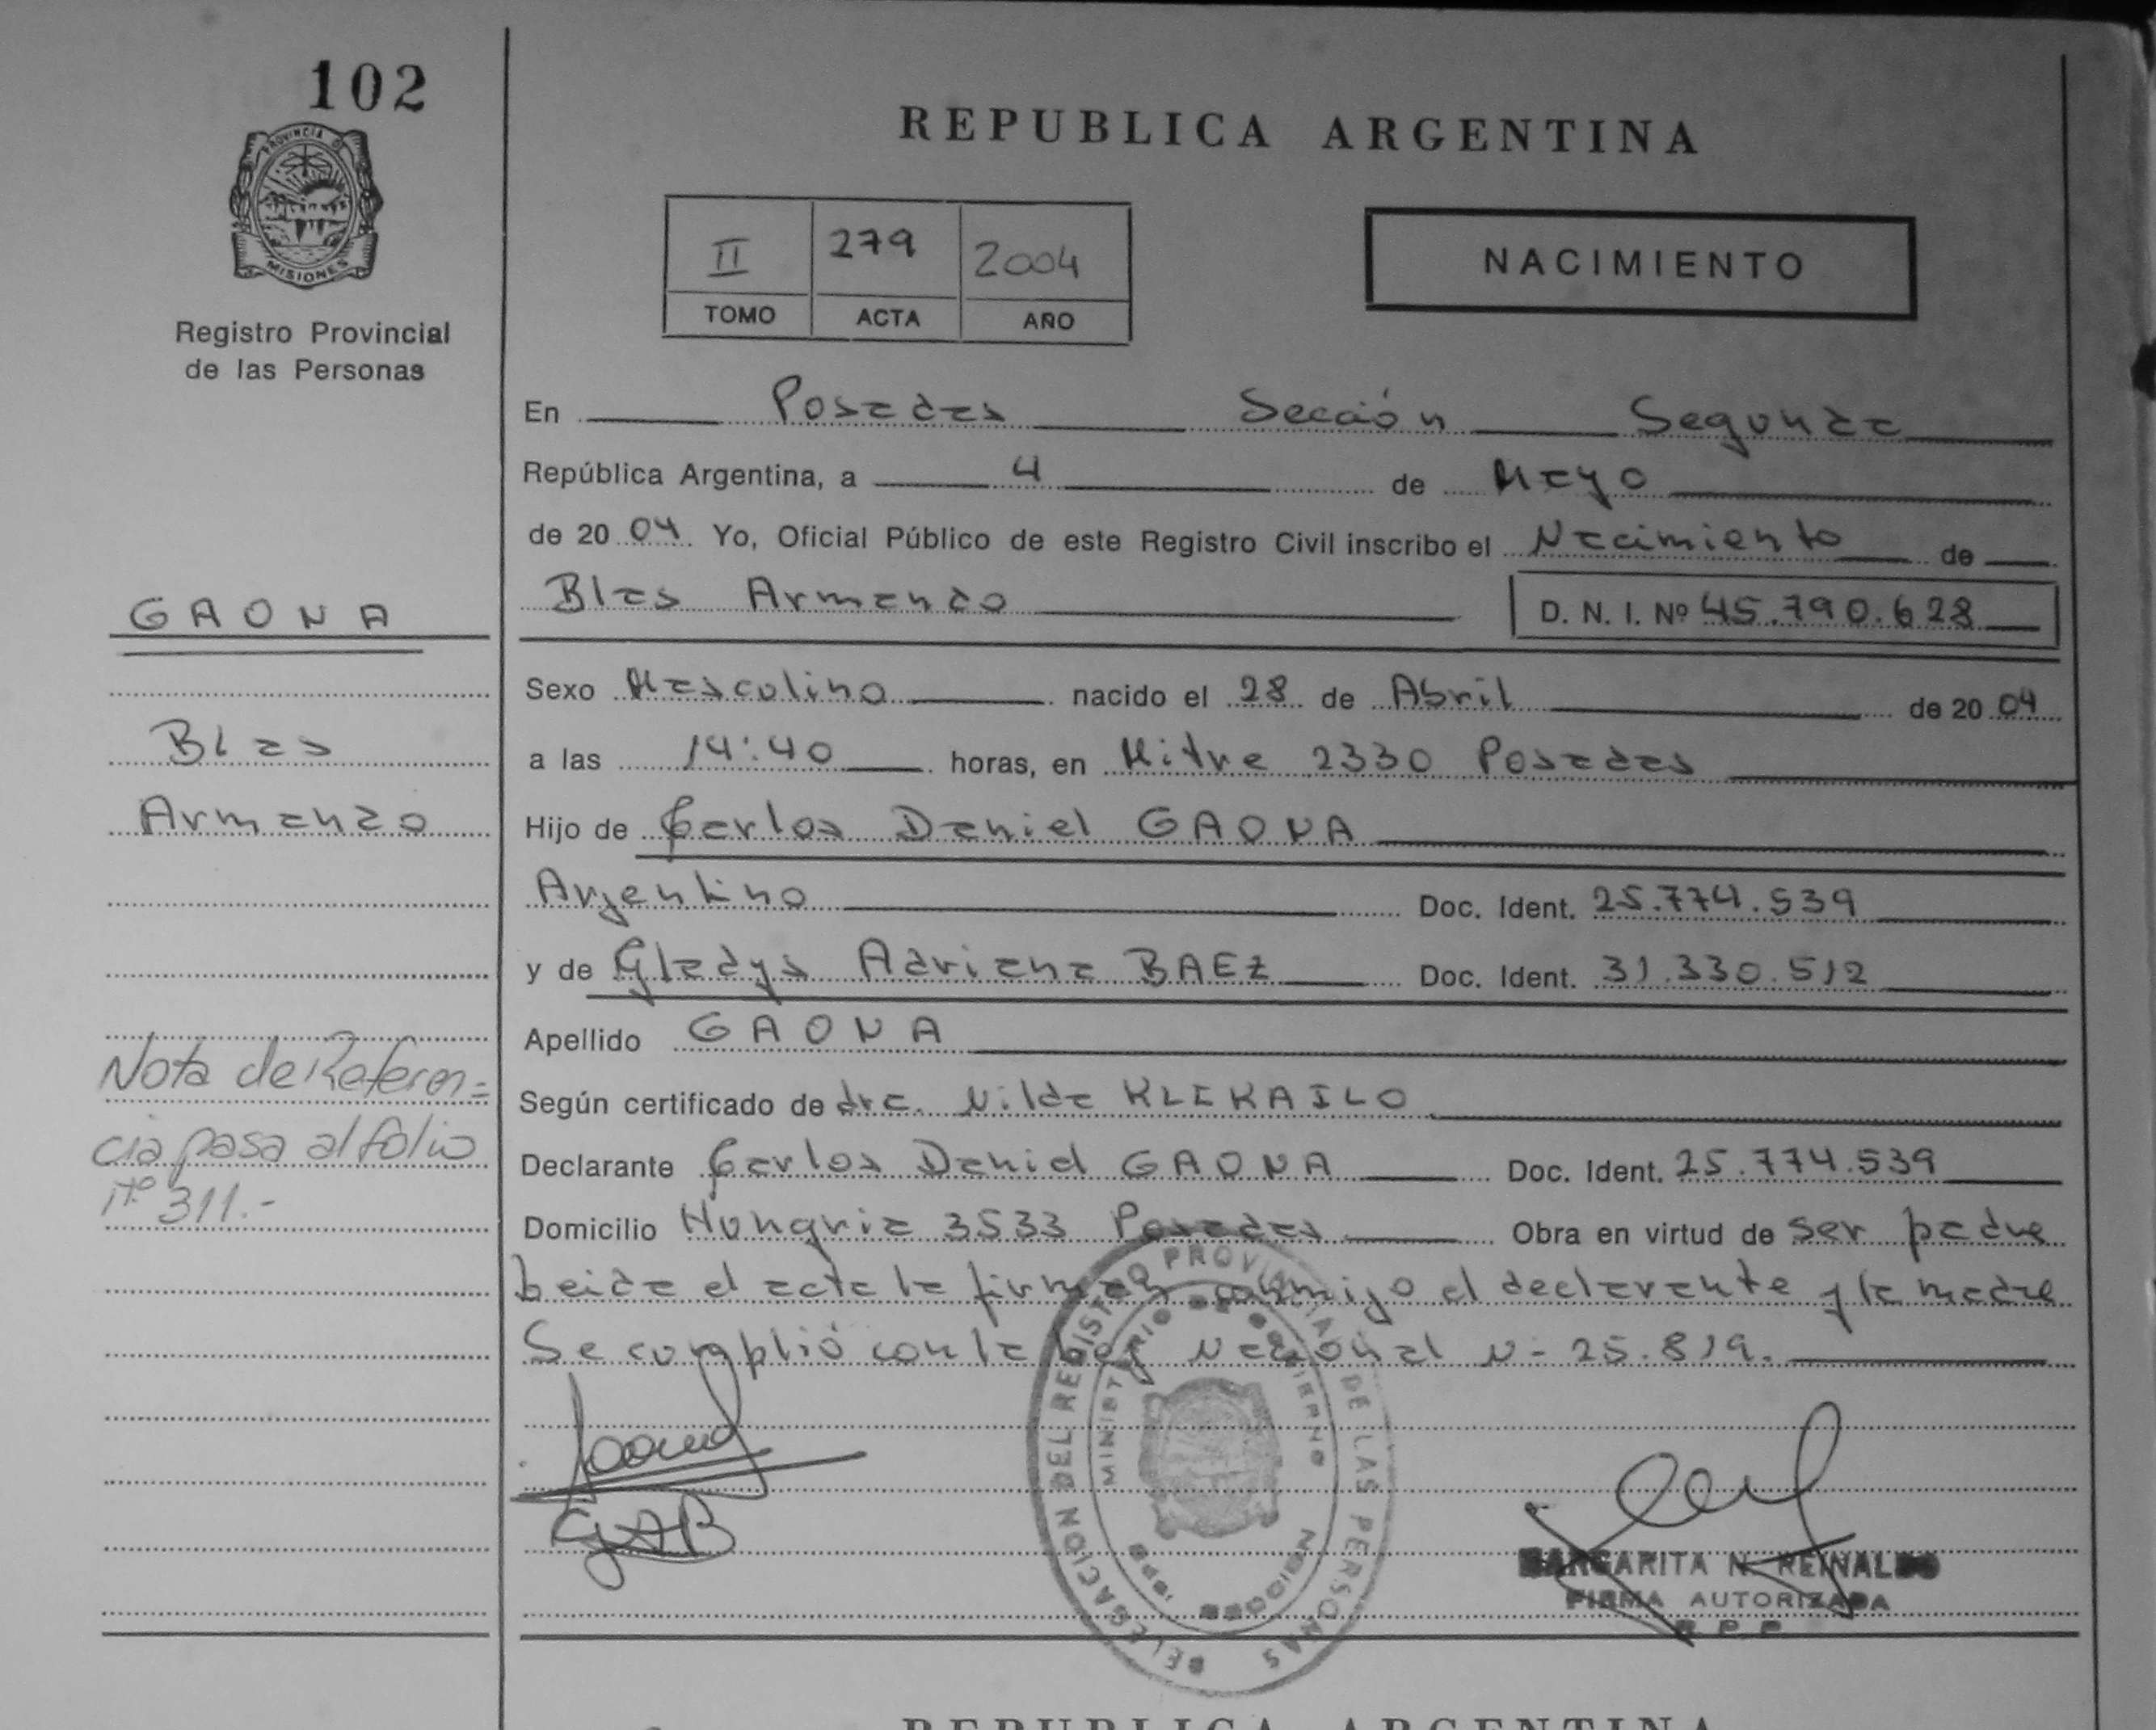 102
PROVINCIA DE
MISIONES
Registro Provincial
de las Personas
REPUBLICA ARGENTINA
II 279 2004
TOMO ACTA AÑO
NACIMIENTO
En Posadas Sección Segunda
República Argentina, a 4 de Mayo
de 2004 Yo, Oficial Público de este Registro Civil inscribo el Nacimiento de
Blas Armando D. N. I. Nº 45.790.628
GAONA
Sexo Masculino nacido el 28 de Abril de 2004
Blas
a las 14:40 horas, en Mitre 2330 Posadas
Armando
Hijo de Carlos Daniel GAONA
Argentino Doc. Ident. 25.774.539
y de Gladys Adriana BAEZ Doc. Ident. 31.330.512
Apellido GAONA
Nota de Referen=
cia pasa al folio
nº 311.-
Según certificado de dra. Nilda KLEKAILO
Declarante Carlos Daniel GAONA Doc. Ident. 25.774.539
Domicilio Hungria 3533 Posadas Obra en virtud de ser padre
Leida el acta la firman conmigo el declarante y la madre
Se cumplió con la Ley Nacional N- 25.819.
GAB
DELEGACION DEL REGISTRO PROVINCIAL DE LAS PERSONAS
MINISTERIO DE GOBIERNO
MISIONES
MARGARITA N. REINALDO
FIRMA AUTORIZADA
R. P. P.
REPUBLICA ARGENTINA